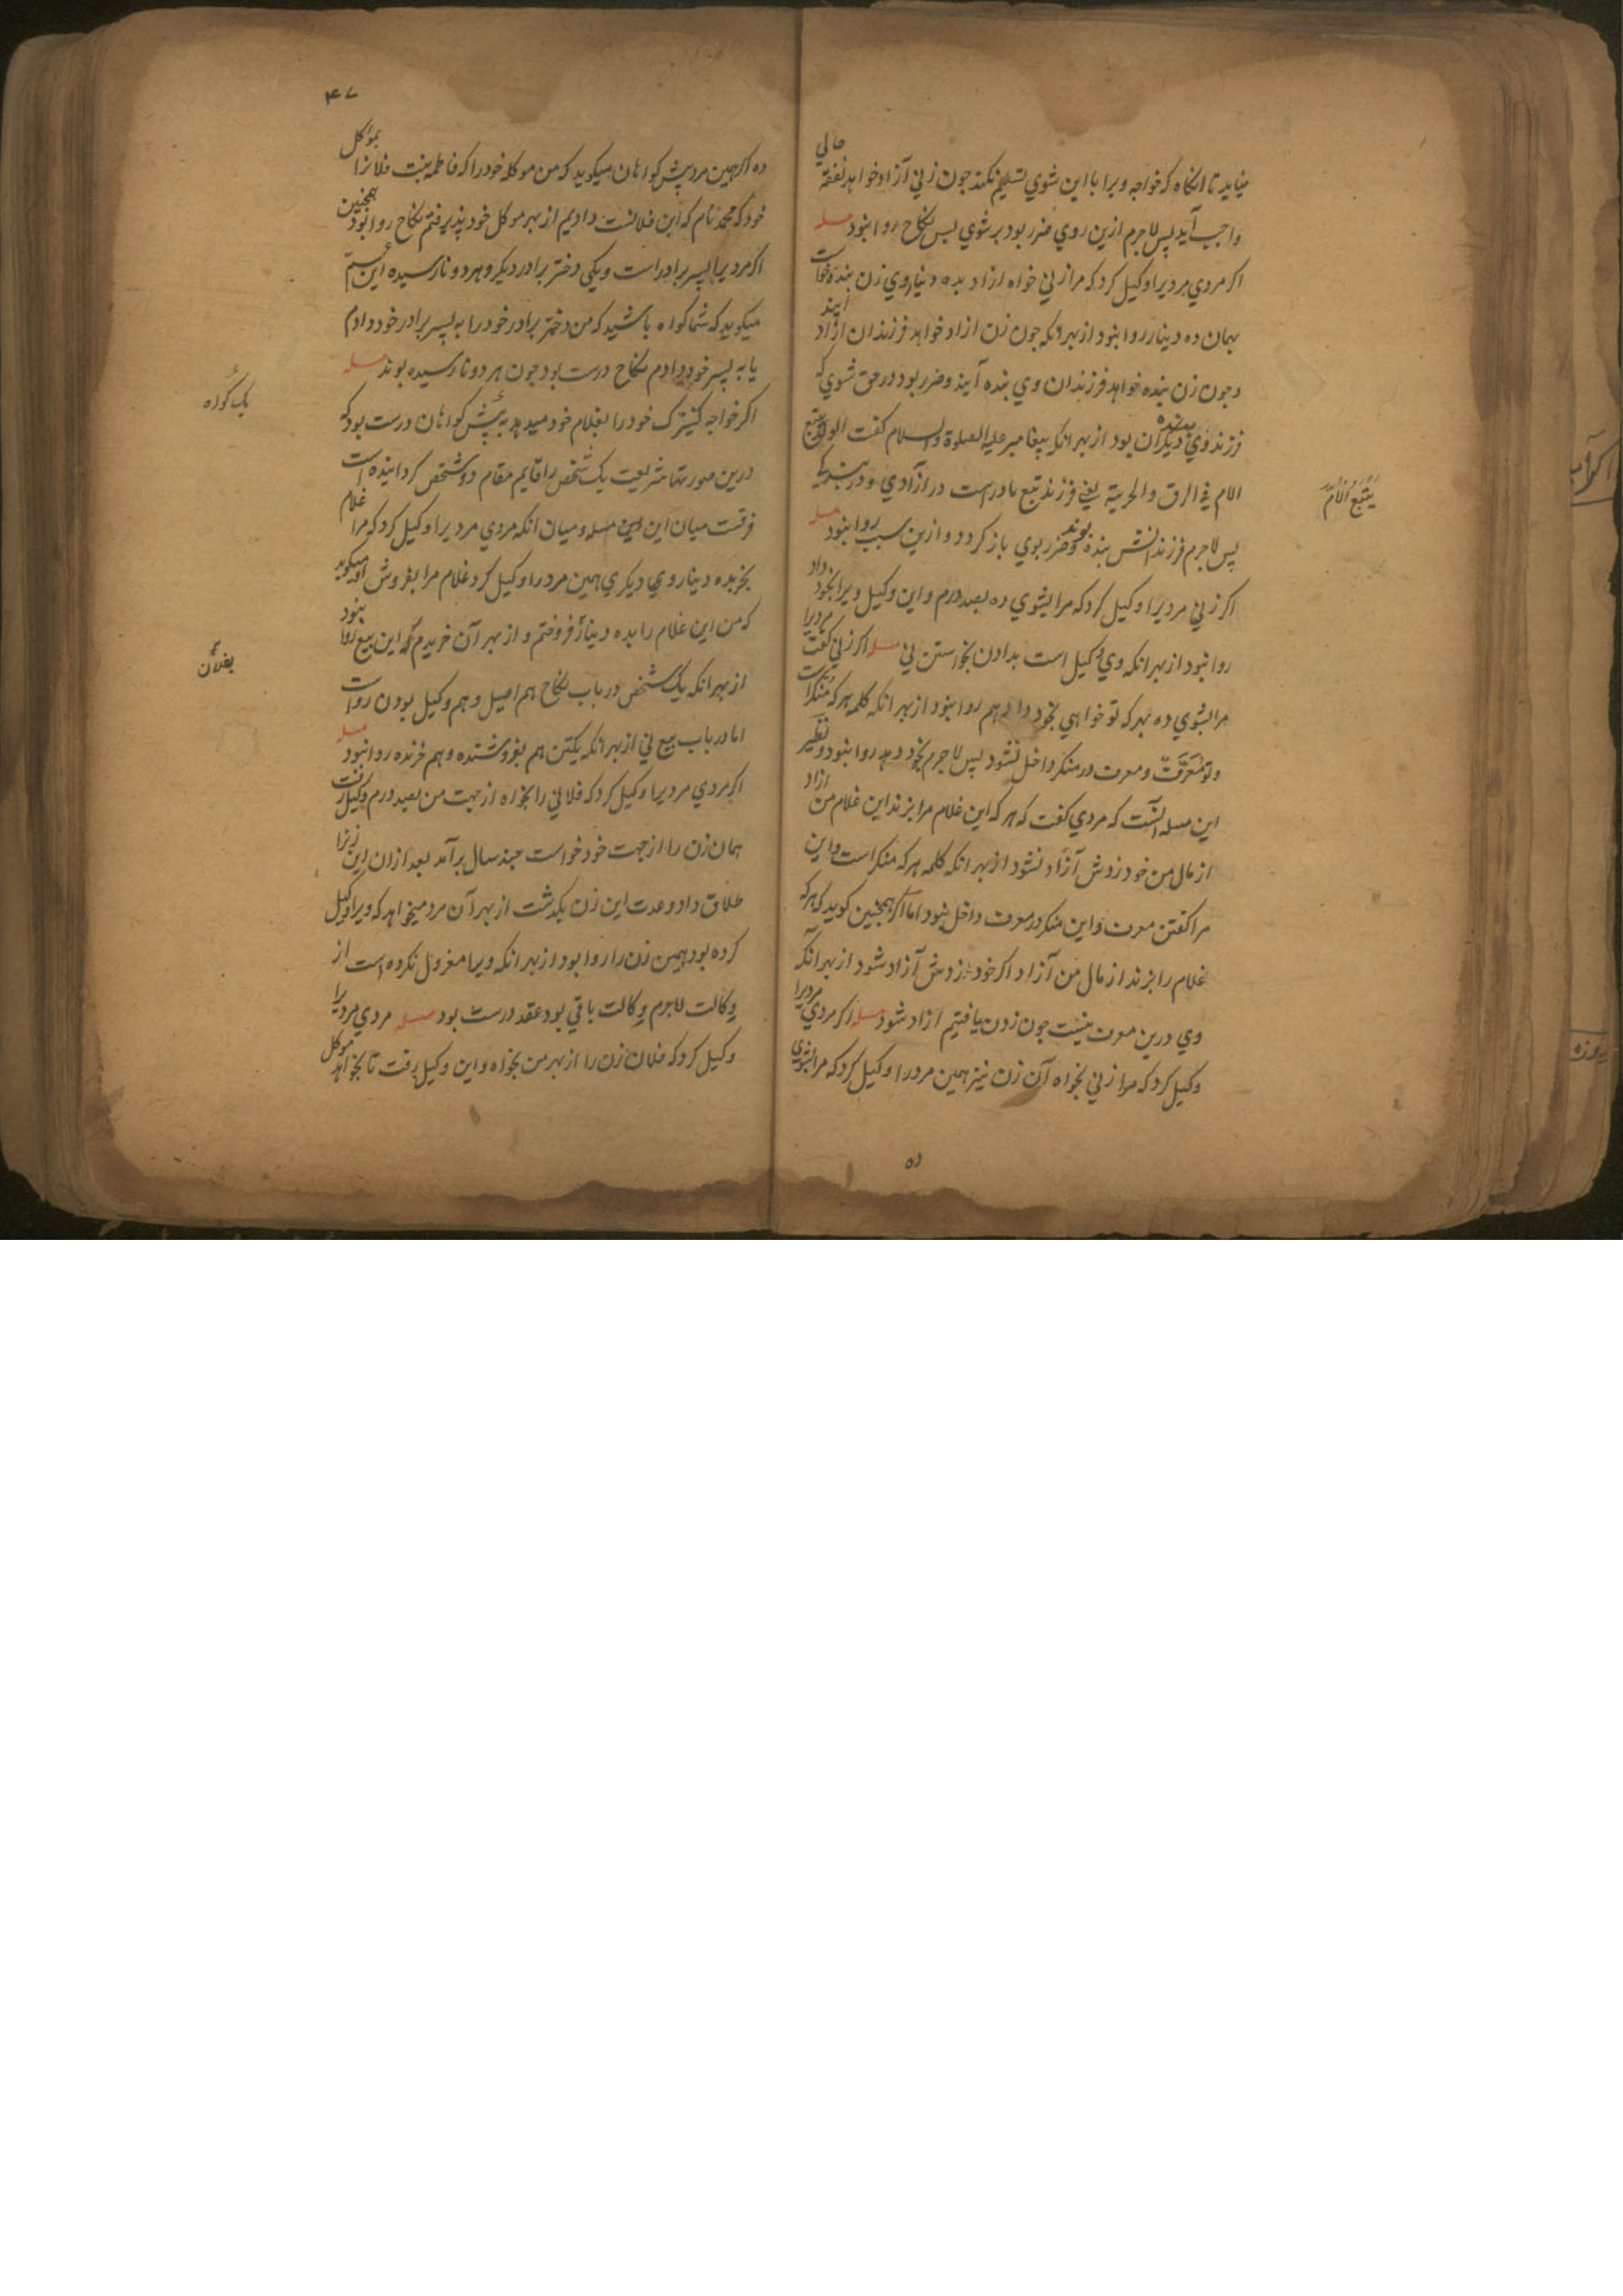 میناید تا انکاه که خواجه ویرا با این شوي تسلیم نکند جون زني آزاد خواهد نفقه حالي
واجب آید پس لاجرم ازین روي ضرر بود بر شوي پس نکاح روا نبود مسله
اکر مردي مردیرا وکیل کرد که مرا زني خواه ازاد بده دینار وي زن بنده خواست
بهمان ده دینار روا نبود از بهر انکه جون زن ازاد خواهد فرزندان ازاد آیند
وجون زن بنده خواهد فرزندان وي بنده آیند وضرر بود در حق شوي که
فرزند وي بنده دیکران بود از بهر انکه پیغامبر علیه الصلوة والسلام کفت الولد یتبع
الام في الرق والحریة یعني فرزند تبع مادر است در ازادي ودر بندکي
یتبع الام
پس لاجرم فرزندانش بنده بوند وضرر بوي باز کردد و ازین سبب روا نبود مسله
اکر زني مردیرا وکیل کرد که مرا بشوي ده بصد درم واین وکیل ویرا بخود داد
روا نبود از بهر انکه وي وکیل است بدادن بخواستن ني مسله اکر زني کفت مردیرا
مرا بشوي ده بهر که تو خواهي بخود داد هم روا نبود از بهر انکه کلمه هر که منکر است
وتو معرفت ومعرف در منکر داخل نشود پس لاجرم بخود دهد روا نبود ونظیر
این مسله انست که مردي کفت که هر که این غلام مرا بزند این غلام من ازاد
از مال من خود زدش آزاد نشود از بهر انکه کلمه هر که منکر است واین
مرا کفتن معرف واین منکر در معرف داخل نبود اما اکر همچنین کوید که هر که
غلام را بزند از مال من آزاد اکر خود زدش آزاد شود از بهر آنکه
وي درین معرف نیست جون زدن یافتیم ازاد شود مسله اکر مردي مردیرا
وکیل کرد که مرا زني بخواه آن زن نیز همین مرد را وکیل کرد که مرا بشوي
ده
۴۷
ده اکر همین مرد پیش کواهان میکوید که من موکله خود را که فاطمه بنت فلانرا بموکل
خود که محمد نام که ابن فلانست دادیم از بهر موکل خود پذیرفتم نکاح روا بود همچنین
اکر مردیرا پسر برادر است ویکي دختر برادر دیکر وهر دو نارسیده این
میکوید که شما کواه باشید که من دختر برادر خود را به پسر برادر خود دادم
یا به پسر خود دادم نکاح درست بود جون هر دو نارسیده بوند مسله
اکر خواجه کنیزک خود را بغلام خود میدهد به پیش کواهان درست بود که
یک کواه
درین صورتها شریعت یک شخص را قایم مقام دو شخص کردانیده است
فرقست میان این مسله ومیان انکه مردي مردیرا وکیل کرد که مرا غلام
بخر بده دینار وي دیکري همین مرد را وکیل کرد غلام مرا بفروش او میکوید
که من این غلام را بده دینار فروختم و از بهر آن خریدم که این بیع روا نبود
بفلان
از بهر انکه یک شخص در باب نکاح هم اصیل وهم وکیل بودن رواست
اما در باب بیع ني از بهر انکه یکتن هم بفروشنده وهم خرنده روا نبود مسله
اکر مردي مردیرا وکیل کرد که فلاني را بخواه از جهت من بصد درم وکیل رفت
همان زن را از جهت خود خواست جند سال برآمد بعد ازان این زنرا
طلاق داد وعدت این زن بکذشت از بهر آن مرد میخواهد که ویرا وکیل
کرده بود همین زن را روا بود از بهر انکه ویرا معزول نکرده است از
وکالت لاجرم وکالت باقي بود عقد درست بود مسله مردي مردیرا
وکیل کرد که فلان زن را از بهر من بخواه واین وکیل رفت تا بخواهد موکل